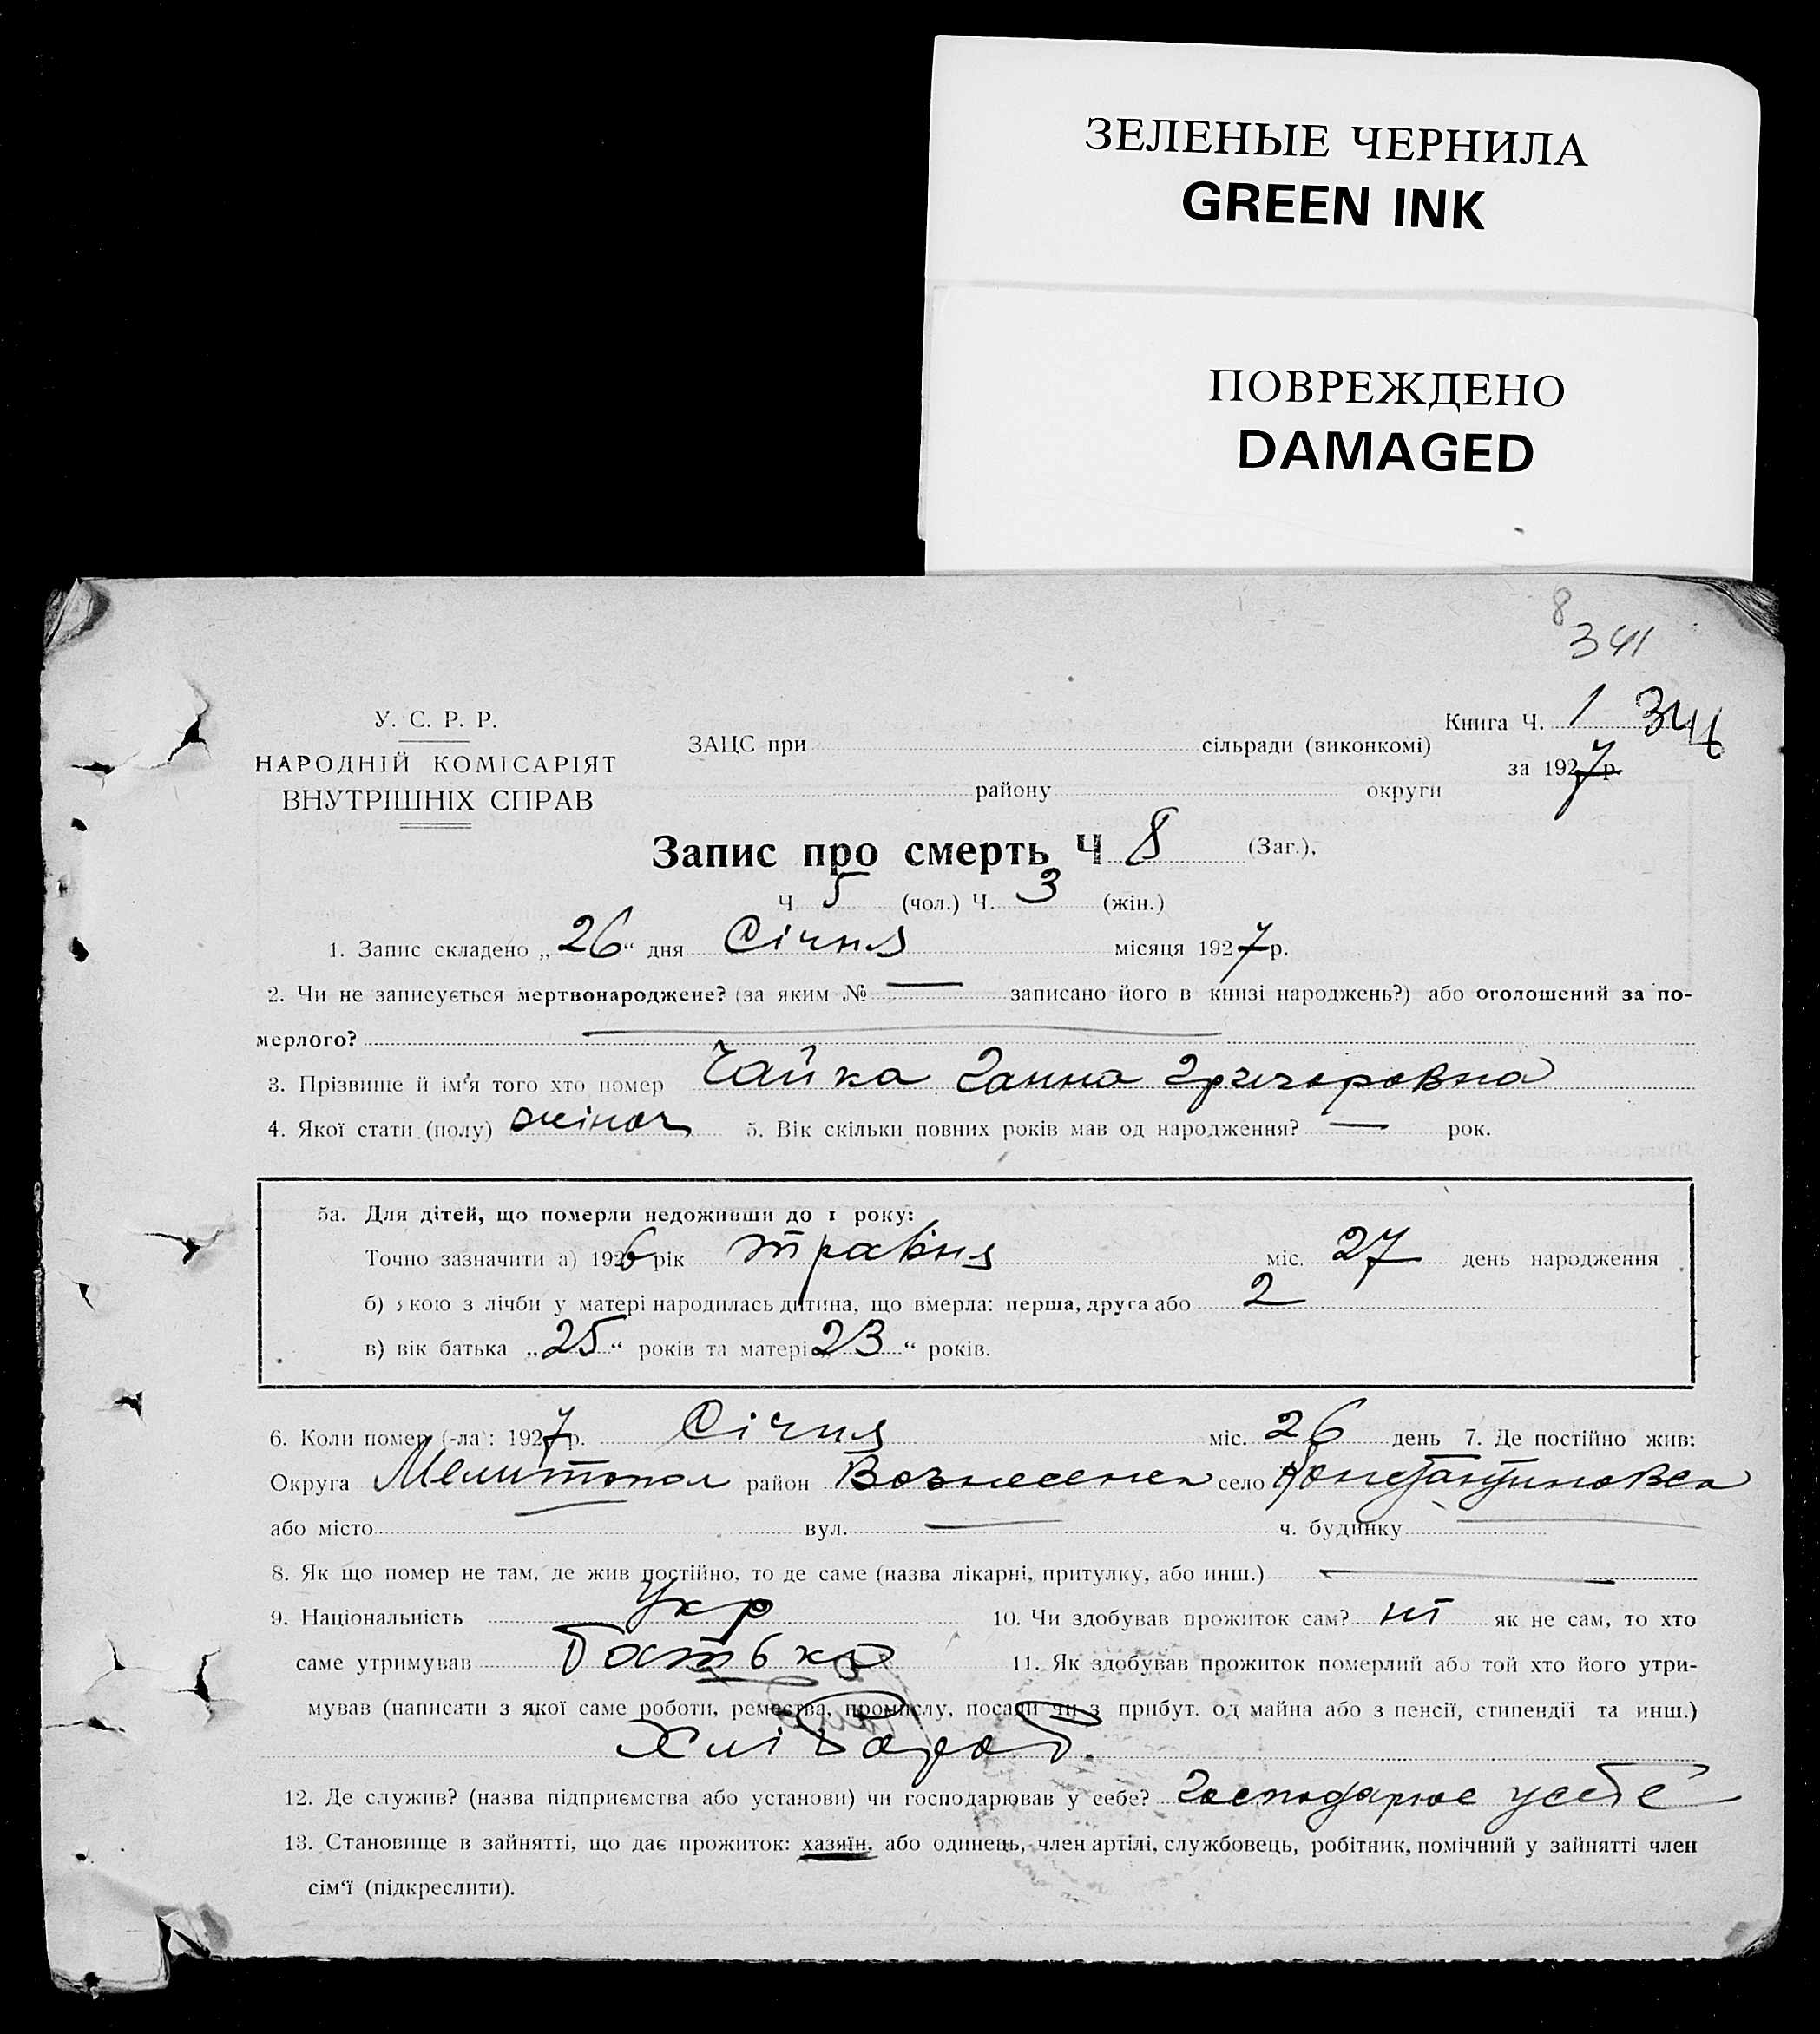 ЗЕЛЕНЫЕ ЧЕРНИЛА
GREEN INK
ПОВРЕЖДЕНО
DAMAGED
8
341
У. С. Р. Р.
НАРОДНІЙ КОМІСАРІЯТ
ВНУТРІШНІХ СПРАВ
Книга Ч. 1
ЗАЦС при сільради (виконкомі)
за 1927 р.
району округи
Запис про смерть Ч 8 (Заг.),
Ч 5 (чол.) Ч. 3 (жін.)
1. Запис складено „26“ дня Січня місяця 1927 р.
2. Чи не записується мертвонароджене? (за яким № — записано його в книзі народжень?) або оголошений за по-
мерлого? —
3. Прізвище й ім'я того хто помер Чайка Ганна Григоровна
4. Якої стати (полу) жіноч 5. Вік скільки повних років мав од народження? — рок.
5а. Для дітей, що померли недоживши до 1 року:
Точно зазначити а) 1926 рік травня міс. 27 день народження
б) якою з лічби у матері народилась дитина, що вмерла: перша, друга або 2
в) вік батька „25“ років та матері „23“ років.
6. Коли помер (-ла): 1927 р. Січня міс. 26 день 7. Де постійно жив:
Округа Мелитопол район Вознесенск село Константиновка
або місто — вул. — ч. будинку —
8. Як що помер не там, де жив постійно, то де саме (назва лікарні, притулку, або инш.) —
9. Національність Укр 10. Чи здобував прожиток сам? ні як не сам, то хто
саме утримував батько 11. Як здобував прожиток померлий або той хто його утри-
мував (написати з якої саме роботи, ремества, промислу, посади чи з прибут. од майна або з пенсії, стипендії та инш.)
Хлібороб.
12. Де служив? (назва підприємства або установи) чи господарював у себе? Господарює у себе
13. Становище в зайнятті, що дає прожиток: хазяїн, або одинець, член артілі, службовець, робітник, помічний у зайнятті член
сім'ї (підкреслити).